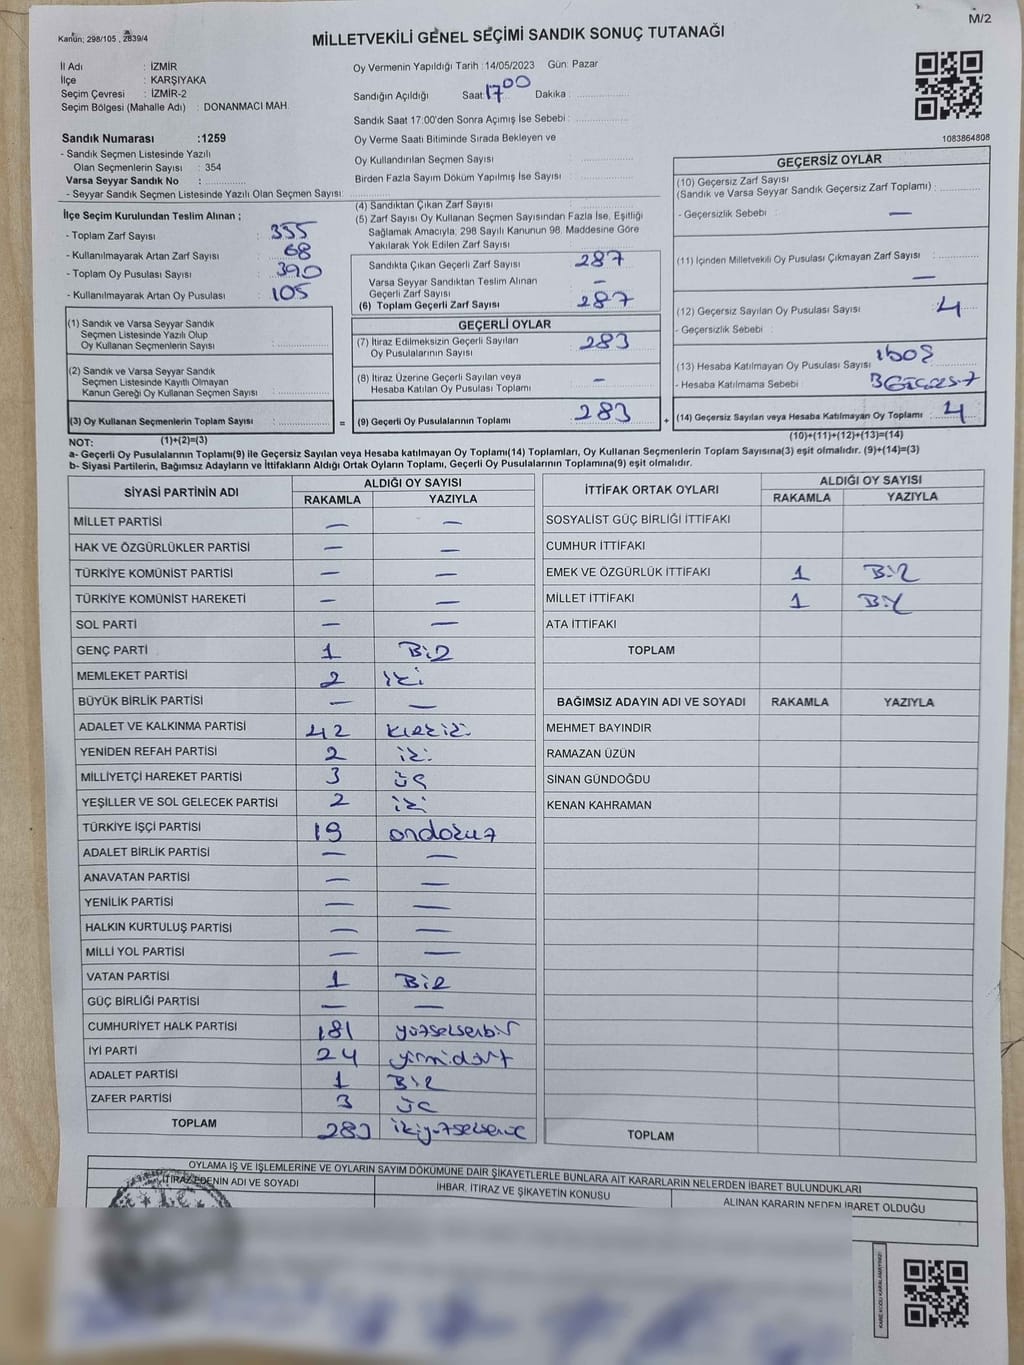 M/2
Kanun; 298/105 , 2839/4
MİLLETVEKİLİ GENEL SEÇİMİ SANDIK SONUÇ TUTANAĞI
İl Adı : İZMİR
İlçe : KARŞIYAKA
Seçim Çevresi : İZMİR-2
Seçim Bölgesi (Mahalle Adı) : DONANMACI MAH.
Oy Vermenin Yapıldığı Tarih :14/05/2023 Gün: Pazar
Sandığın Açıldığı Saat: 17 00 Dakika :
Sandık Saat 17:00'den Sonra Açımış İse Sebebi :
Oy Verme Saati Bitiminde Sırada Bekleyen ve
Oy Kullandırılan Seçmen Sayısı :
Birden Fazla Sayım Döküm Yapılmış İse Sayısı :
1083864808
Sandık Numarası :1259
- Sandık Seçmen Listesinde Yazılı
Olan Seçmenlerin Sayısı : 354
Varsa Seyyar Sandık No :
- Seyyar Sandık Seçmen Listesinde Yazılı Olan Seçmen Sayısı:
İlçe Seçim Kurulundan Teslim Alınan ;
- Toplam Zarf Sayısı : 355
- Kullanılmayarak Artan Zarf Sayısı : 68
- Toplam Oy Pusulası Sayısı : 390
- Kullanılmayarak Artan Oy Pusulası : 105
(1) Sandık ve Varsa Seyyar Sandık
Seçmen Listesinde Yazılı Olup
Oy Kullanan Seçmenlerin Sayısı :
(2) Sandık ve Varsa Seyyar Sandık
Seçmen Listesinde Kayıtlı Olmayan
Kanun Gereği Oy Kullanan Seçmen Sayısı :
(3) Oy Kullanan Seçmenlerin Toplam Sayısı :
(4) Sandıktan Çıkan Zarf Sayısı :
(5) Zarf Sayısı Oy Kullanan Seçmen Sayısından Fazla İse, Eşitliği
Sağlamak Amacıyla, 298 Sayılı Kanunun 98. Maddesine Göre
Yakılarak Yok Edilen Zarf Sayısı :
Sandıkta Çıkan Geçerli Zarf Sayısı : 287
Varsa Seyyar Sandıktan Teslim Alınan
Geçerli Zarf Sayısı : —
(6) Toplam Geçerli Zarf Sayısı : 287
GEÇERLİ OYLAR
(7) İtiraz Edilmeksizin Geçerli Sayılan
Oy Pusulalarının Sayısı : 283
(8) İtiraz Üzerine Geçerli Sayılan veya
Hesaba Katılan Oy Pusulası Toplamı : —
= (9) Geçerli Oy Pusulalarının Toplamı : 283
GEÇERSİZ OYLAR
(10) Geçersiz Zarf Sayısı
(Sandık ve Varsa Seyyar Sandık Geçersiz Zarf Toplamı) :
- Geçersizlik Sebebi : —
(11) İçinden Milletvekili Oy Pusulası Çıkmayan Zarf Sayısı : —
(12) Geçersiz Sayılan Oy Pusulası Sayısı : 4
- Geçersizlik Sebebi :
(13) Hesaba Katılmayan Oy Pusulası Sayısı :
- Hesaba Katılmama Sebebi :
+ (14) Geçersiz Sayılan veya Hesaba Katılmayan Oy Toplamı : 4
NOT: (1)+(2)=(3) (10)+(11)+(12)+(13)=(14)
a- Geçerli Oy Pusulalarının Toplamı(9) ile Geçersiz Sayılan veya Hesaba katılmayan Oy Toplamı(14) Toplamları, Oy Kullanan Seçmenlerin Toplam Sayısına(3) eşit olmalıdır. (9)+(14)=(3)
b- Siyasi Partilerin, Bağımsız Adayların ve İttifakların Aldığı Ortak Oyların Toplamı, Geçerli Oy Pusulalarının Toplamına(9) eşit olmalıdır.
SİYASİ PARTİNİN ADI ALDIĞI OY SAYISI
RAKAMLA YAZIYLA
MİLLET PARTİSİ — —
HAK VE ÖZGÜRLÜKLER PARTİSİ — —
TÜRKİYE KOMÜNİST PARTİSİ — —
TÜRKİYE KOMÜNİST HAREKETİ — —
SOL PARTİ — —
GENÇ PARTİ 1 Bir
MEMLEKET PARTİSİ 2 iki
BÜYÜK BİRLİK PARTİSİ — —
ADALET VE KALKINMA PARTİSİ 42
YENİDEN REFAH PARTİSİ 2 iki
MİLLİYETÇİ HAREKET PARTİSİ 3 üç
YEŞİLLER VE SOL GELECEK PARTİSİ 2 iki
TÜRKİYE İŞÇİ PARTİSİ 19 ondokuz
ADALET BİRLİK PARTİSİ — —
ANAVATAN PARTİSİ — —
YENİLİK PARTİSİ — —
HALKIN KURTULUŞ PARTİSİ — —
MİLLİ YOL PARTİSİ — —
VATAN PARTİSİ 1 Bir
GÜÇ BİRLİĞİ PARTİSİ — —
CUMHURİYET HALK PARTİSİ 181 yüzseksenbir
İYİ PARTİ 24 yirmidört
ADALET PARTİSİ 1 Bir
ZAFER PARTİSİ 3 üç
TOPLAM 283
İTTİFAK ORTAK OYLARI ALDIĞI OY SAYISI
RAKAMLA YAZIYLA
SOSYALİST GÜÇ BİRLİĞİ İTTİFAKI
CUMHUR İTTİFAKI
EMEK VE ÖZGÜRLÜK İTTİFAKI 1 Bir
MİLLET İTTİFAKI 1 Bir
ATA İTTİFAKI
TOPLAM
BAĞIMSIZ ADAYIN ADI VE SOYADI RAKAMLA YAZIYLA
MEHMET BAYINDIR
RAMAZAN ÜZÜN
SİNAN GÜNDOĞDU
KENAN KAHRAMAN
TOPLAM
OYLAMA İŞ VE İŞLEMLERİNE VE OYLARIN SAYIM DÖKÜMÜNE DAİR ŞİKAYETLERLE BUNLARA AİT KARARLARIN NELERDEN İBARET BULUNDUKLARI
İTİRAZ EDENİN ADI VE SOYADI
İHBAR, İTİRAZ VE ŞİKAYETİN KONUSU
ALINAN KARARIN NEDEN İBARET OLDUĞU